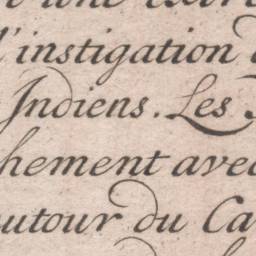 l'instigation
Indiens. Les
hement avec
autour du Ca